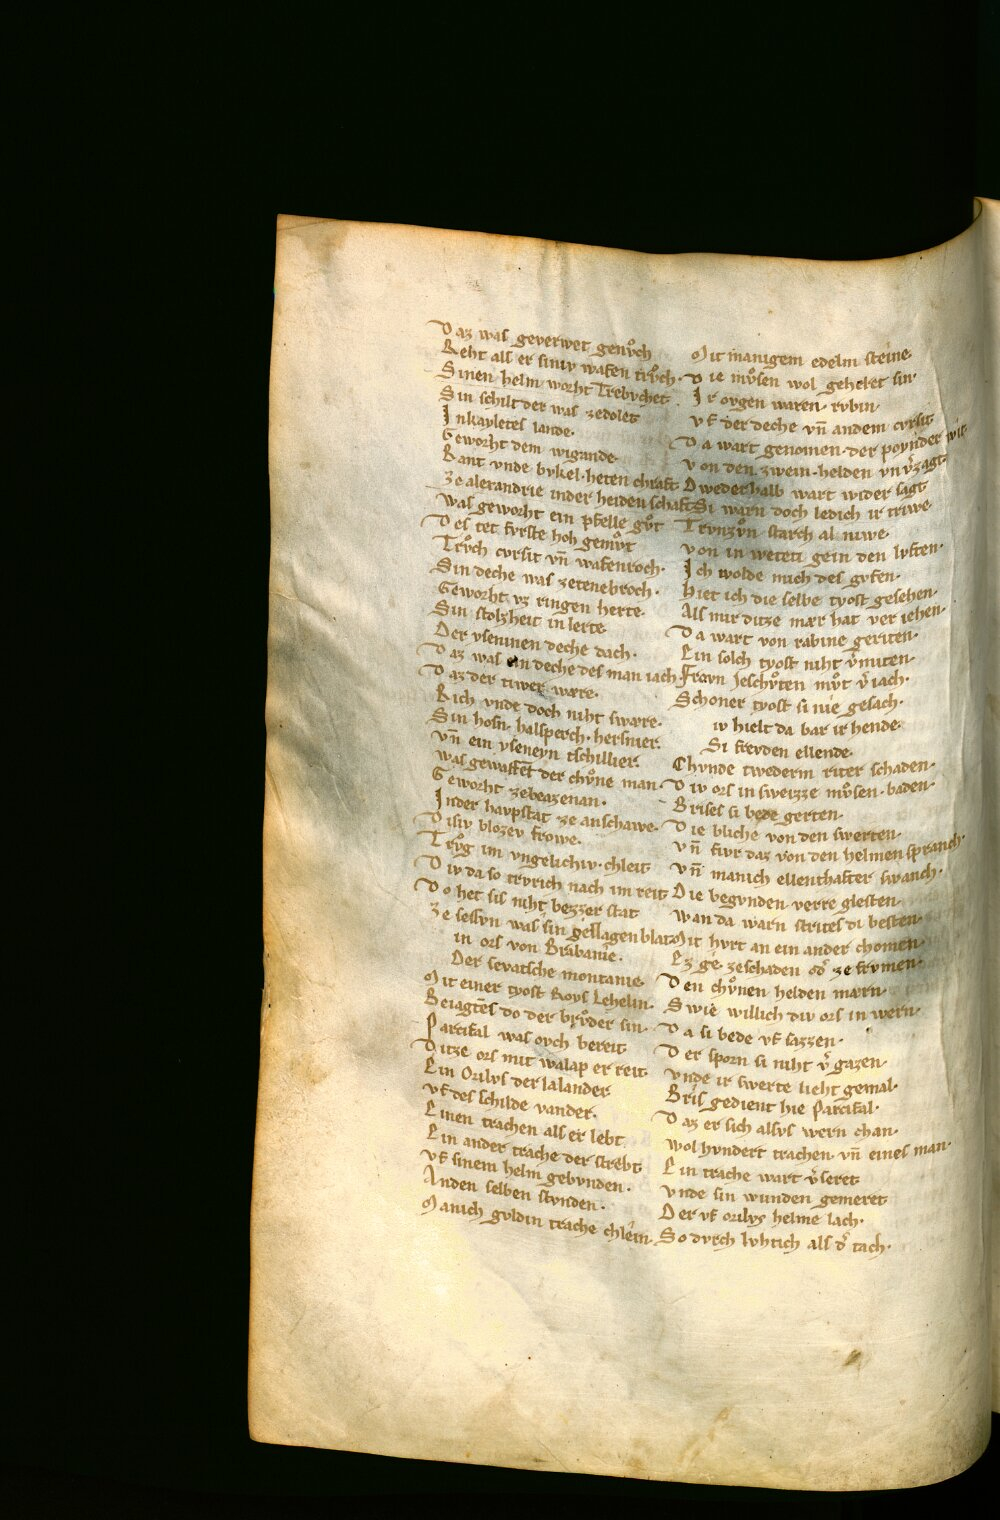 Daz was geverwet genvͦch
Reht alſ er ſiniv wafen trvͦch.
Sinen helm worht Trebvchet
Sin ſchilt der was zedolet
Inkayletes lande.
Geworht dem wigande
Rant vnde bvkel. heten chraft
Ze alexandrie inder heiden ſchaft
Was geworht ein pfelle gvͦt
Des tet fvrſte hoh gemvͦt
Trvͦch cvrſit vn̄ wafenroch.
Sin deche was zetenebroch.
Geworht vz ringen herte
Sin ſtolzheit in lerte
Der yſeninen deche dach.
Daz was ein deche des man iach
Daz der tiwer wære.
Rich vnde doch niht ſwære.
Sin hoſn. halſperch. herſnier.
Vn̄ ein yſeneyn tſchillier
Was gewaffēt der chvͦne man
Geworht zebeazenan.
Inder havpſtat ze anſchawe.
Diſiv blozev frowe.
Trvͦg im vngelichiv. chleit
Div da ſo trvrich nach im reit
Do het ſis niht bezzer ſtat
Ze ſeſſvn was ſin geſlagen blat
in ors von Brabanie.
Der ſevatſche montanie
Mit einer tyoſt Roys Lehelin.
Beiagtēs do der brvͦder ſin.
Parcifal was ovch bereit
Ditze ors mit walap er reit
Ein Orilvs der lalander
Vf des ſchilde vander.
Einen trachen alſ er lebt
Ein ander trache der ſtrebt
Vf ſinem helm gebvnden.
Anden ſelben ſtvnden.
Manich gvldin trache chlein.
Mit manigem edelm ſteine
Die mvͦſen wol geheret ſin
Ir ovgen waren. rvbin
Vf der deche vn̄ andem cvrſit
Da wart genomen. der poynder wit
Von den zwein. helden vnv̄zagt
Dweder halb wart wider ſagt
Si warn doch ledich ir triwe
Trvnzvͦn ſtarch al niwe
Von in weteti gein den lvften.
Ich wolde mich des gvfen.
Hiet ich die ſelbe tyoſt geſehen.
Alſ mir ditze mær hat ver iehen.
Da wart von rabine geriten.
Ein ſolch tyoſt niht v̄miten.
Fravn Jeſchvͦten mvͦt v̄iach.
Schoner tyoſt ſi nie geſach.
iv hielt da bar ir hende.
Si frevden ellende.
Chvnde twederm riter ſchaden.
Div ors in ſweizze mvͦſen. baden.
Briſes ſi bede gerten.
Die bliche von den ſwerten.
Vn̄ fivr daz von den helmen ſpranch.
Vn̄ manich ellenthafter ſwanch.
Die begvnden verre gleſten.
Wan da warn ſtrites di beſten.
Mit hvrt an ein ander chomen
Ez ge zeſchaden od͛ ze frvmen.
Den chvͦnen helden mærn.
Swie willich div ors in wern.
Da ſi bede vf ſazzen.
Der ſporn ſi niht v̄gazen.
Vnde ir ſwerte lieht gemal.
Briſ gedient hie Parcifal.
Daz er ſich alſvs wern chan.
Wol hvndert trachen. vn̄ eines man.
Ein trache wart v̄ſeret
Vnde ſin wunden gemeret
Der vf orilvs helme lach.
So dvrch lvhtich alſ d͛ tach.